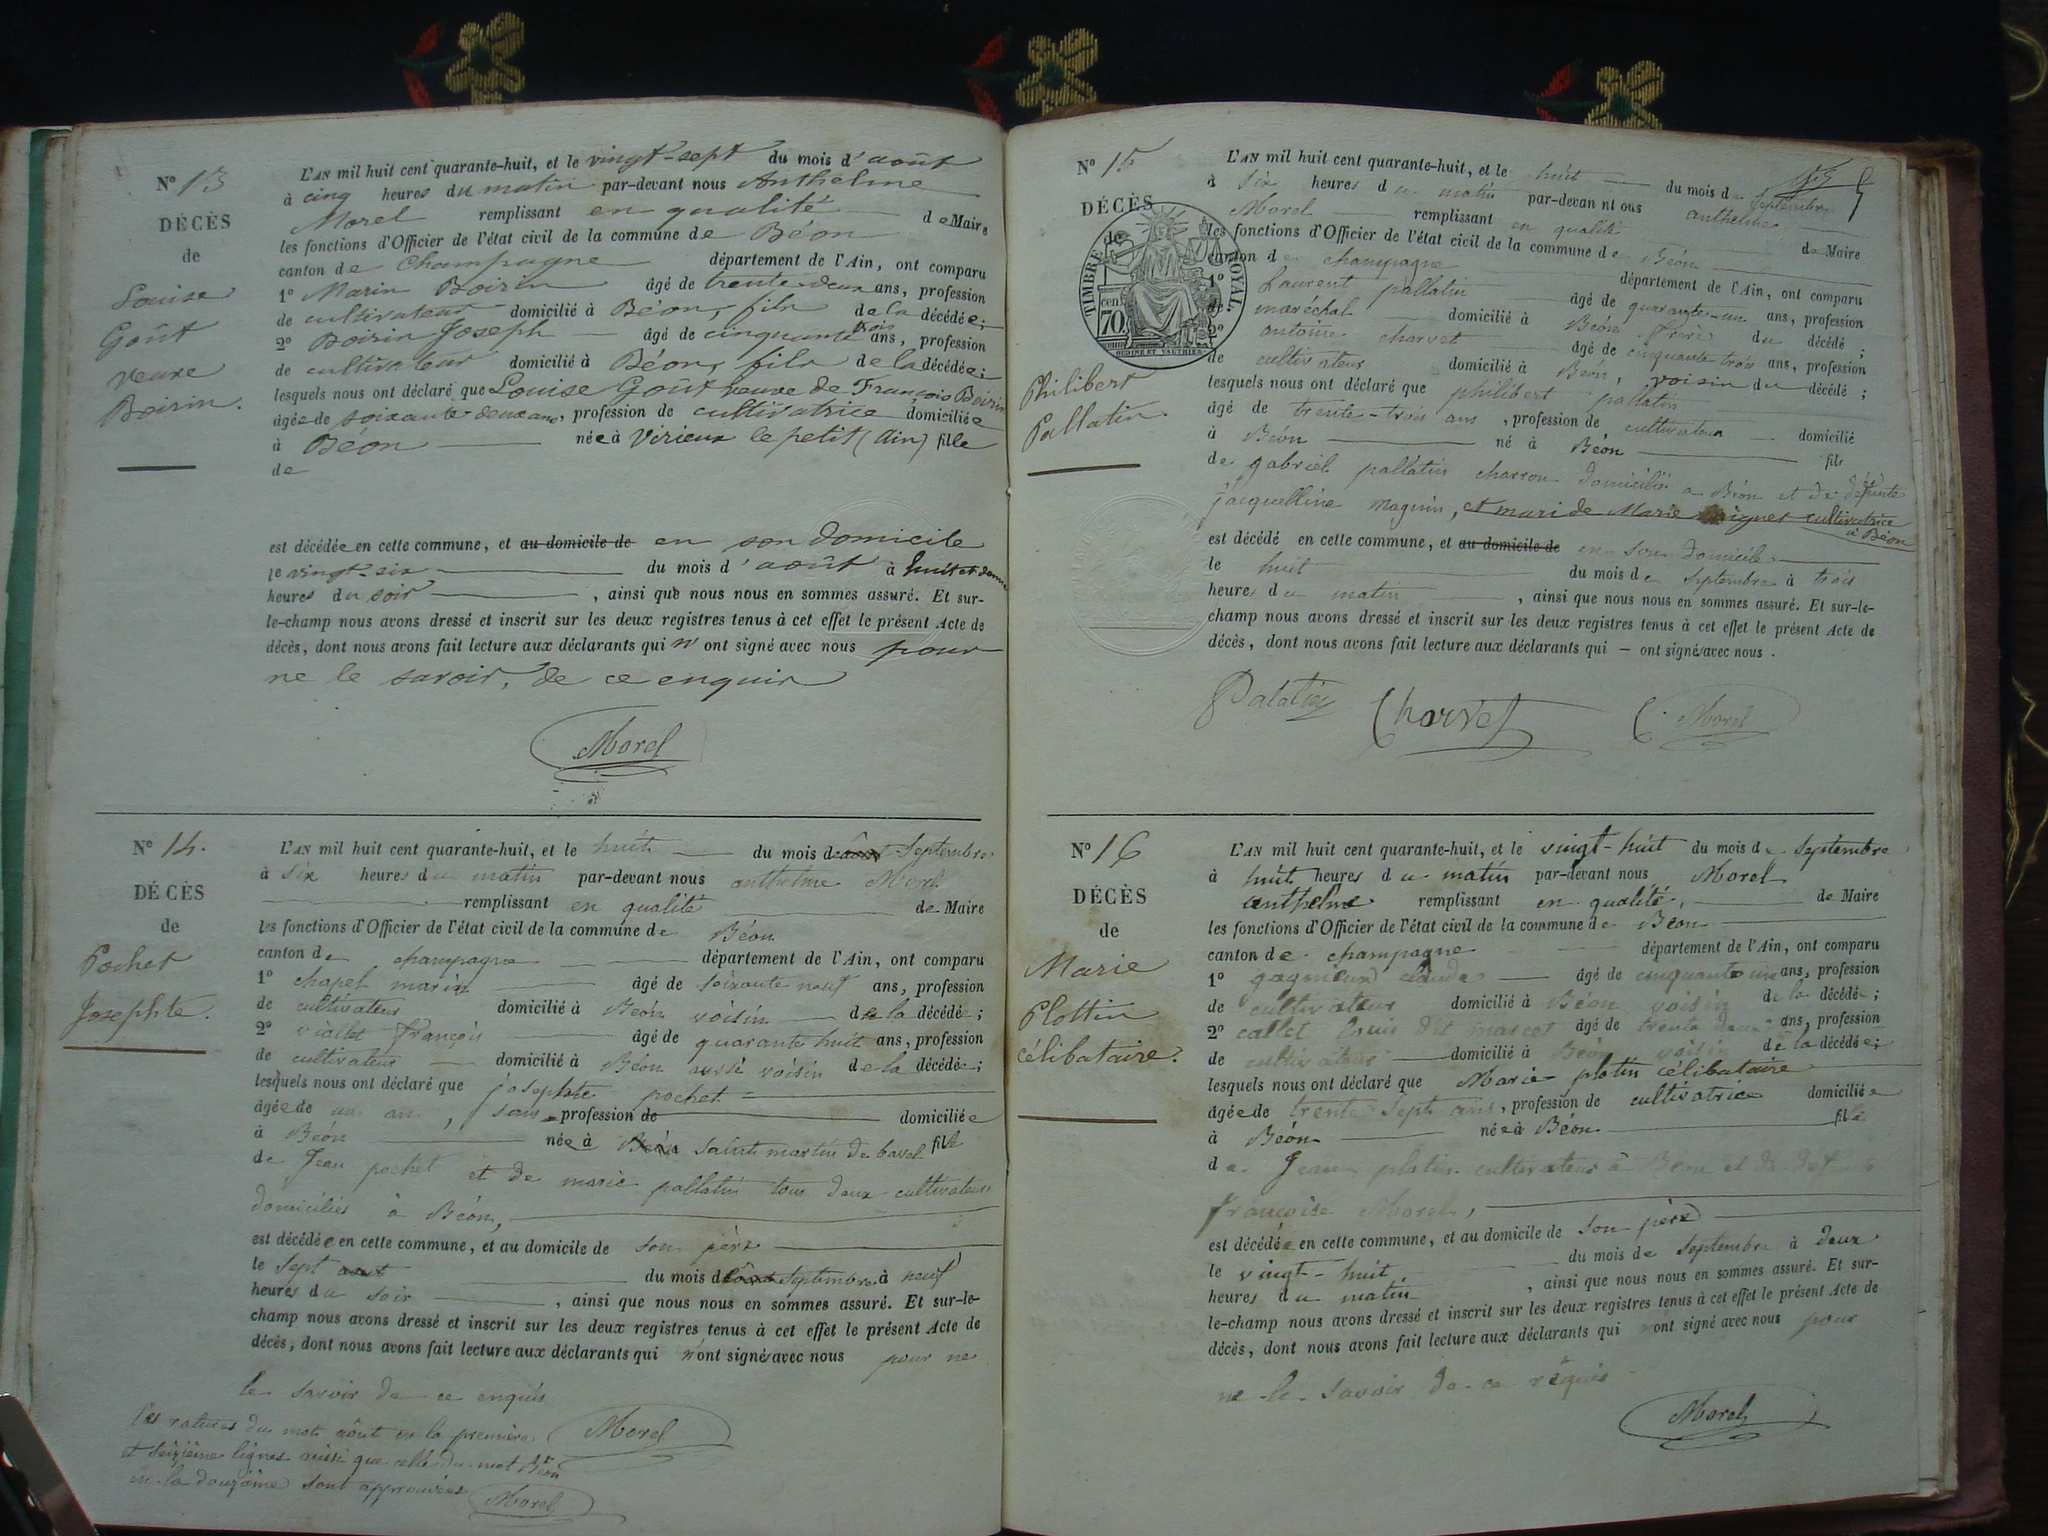 N° 13
DÉCÈS
de
Louise
Goût
veuve
Boirin.
L'AN mil huit cent quarante-huit, et le vingt-sept du mois d'août
à cinq heures du matin par-devant nous Anthelme
Morel remplissant en qualité de Maire
les fonctions d'Officier de l'état civil de la commune de Béon
canton de Champagne département de l'Ain, ont comparu
1° Marin Boirin âgé de trente deux ans, profession
de cultivateur domicilié à Béon, fils de la décédée;
2° Boirin Joseph âgé de cinquante trois ans, profession
de cultivateur domicilié à Béon, fils de la décédée;
lesquels nous ont déclaré que Louise Goût veuve de François Boirin
âgée de soixante deux ans, profession de cultivatrice domiciliée
à Béon née à Virieux le petit (Ain) fille
de
est décédée en cette commune, et au domicile de en son domicile
le vingt-six du mois d'août à huit et demie
heures du soir, ainsi que nous nous en sommes assuré. Et sur-
le-champ nous avons dressé et inscrit sur les deux registres tenus à cet effet le présent Acte de
décès, dont nous avons fait lecture aux déclarants qui n'ont signé avec nous pour
ne le savoir, de ce enquis
Morel
N° 14.
DÉCÈS
de
Pochet
Josephte.
L'AN mil huit cent quarante-huit, et le huit du mois de août Septembre
à six heures du matin par-devant nous anthelme Morel
remplissant en qualité de Maire
les fonctions d'Officier de l'état civil de la commune de Béon
canton de champagne département de l'Ain, ont comparu
1° chapel marin âgé de soixante neuf ans, profession
de cultivateur domicilié à Béon voisin de la décédée;
2° viallet françois âgé de quarante huit ans, profession
de cultivateur domicilié à Béon aussi voisin de la décédée;
lesquels nous ont déclaré que josephte pochet
âgée de un an, sans profession de domiciliée
à Béon née à Béon saint martin de bavel fille
de Jean pochet et de marie pallatin tous deux cultivateurs
domiciliés à Béon,
est décédée en cette commune, et au domicile de son père
le sept aout du mois d'août septembre à neuf
heures du soir, ainsi que nous nous en sommes assuré. Et sur-le-
champ nous avons dressé et inscrit sur les deux registres tenus à cet effet le présent Acte de
décès, dont nous avons fait lecture aux déclarants qui n'ont signé avec nous pour ne
le savoir de ce enquis
Les ratures du mot août en la première
et seizième lignes ainsi que celle du mot Béon
en la douzième sont approuvées
Morel
Morel
N° 15
DÉCÈS
de
TIMBRE ROYAL
cen 70
Philibert
Pallatin
L'AN mil huit cent quarante-huit, et le huit du mois de Septembre
à six heures du matin par-devant nous anthelme
Morel remplissant en qualité de Maire
les fonctions d'Officier de l'état civil de la commune de Béon
canton de champagne département de l'Ain, ont comparu
1° Laurent pallatin âgé de quarante-un ans, profession
de maréchal domicilié à Béon frère du décédé;
2° antoine charvet âgé de cinquante trois ans, profession
de cultivateur domicilié à Béon, voisin du décédé;
lesquels nous ont déclaré que philibert pallatin
âgé de trente-trois ans, profession de cultivateur domicilié
à Béon né à Béon fils
de gabriel pallatin charron domicilié à Béon et de défunte
jacquelline magnin, et mari de Marie cultivatrice
à Béon
est décédé en cette commune, et au domicile de en son domicile
le huit du mois de septembre à trois
heures du matin, ainsi que nous nous en sommes assuré. Et sur-le-
champ nous avons dressé et inscrit sur les deux registres tenus à cet effet le présent Acte de
décès, dont nous avons fait lecture aux déclarants qui — ont signé avec nous.
Palatin Charvet Morel
N° 16
DÉCÈS
de
Marie
Plottin
célibataire.
L'AN mil huit cent quarante-huit, et le vingt-huit du mois de septembre
à huit heures du matin par-devant nous Morel
anthelme remplissant en qualité, de Maire
les fonctions d'Officier de l'état civil de la commune de Béon
canton de champagne département de l'Ain, ont comparu
1° gagnieux claude âgé de cinquante un ans, profession
de cultivateur domicilié à Béon voisin de la décédée;
2° callet louis dit marcet âgé de trente deux ans, profession
de cultivateur domicilié à Béon voisin de la décédée;
lesquels nous ont déclaré que Marie plotin célibataire
âgée de trente sept ans, profession de cultivatrice domiciliée
à Béon née à Béon fille
de Jean plotin cultivateur à Béon et de défunte
françoise Morel,
est décédée en cette commune, et au domicile de son père
le vingt-huit du mois de septembre à deux
heures du matin, ainsi que nous nous en sommes assuré. Et sur-
le-champ nous avons dressé et inscrit sur les deux registres tenus à cet effet le présent Acte de
décès, dont nous avons fait lecture aux déclarants qui n'ont signé avec nous pour
ne le savoir de ce requis
Morel